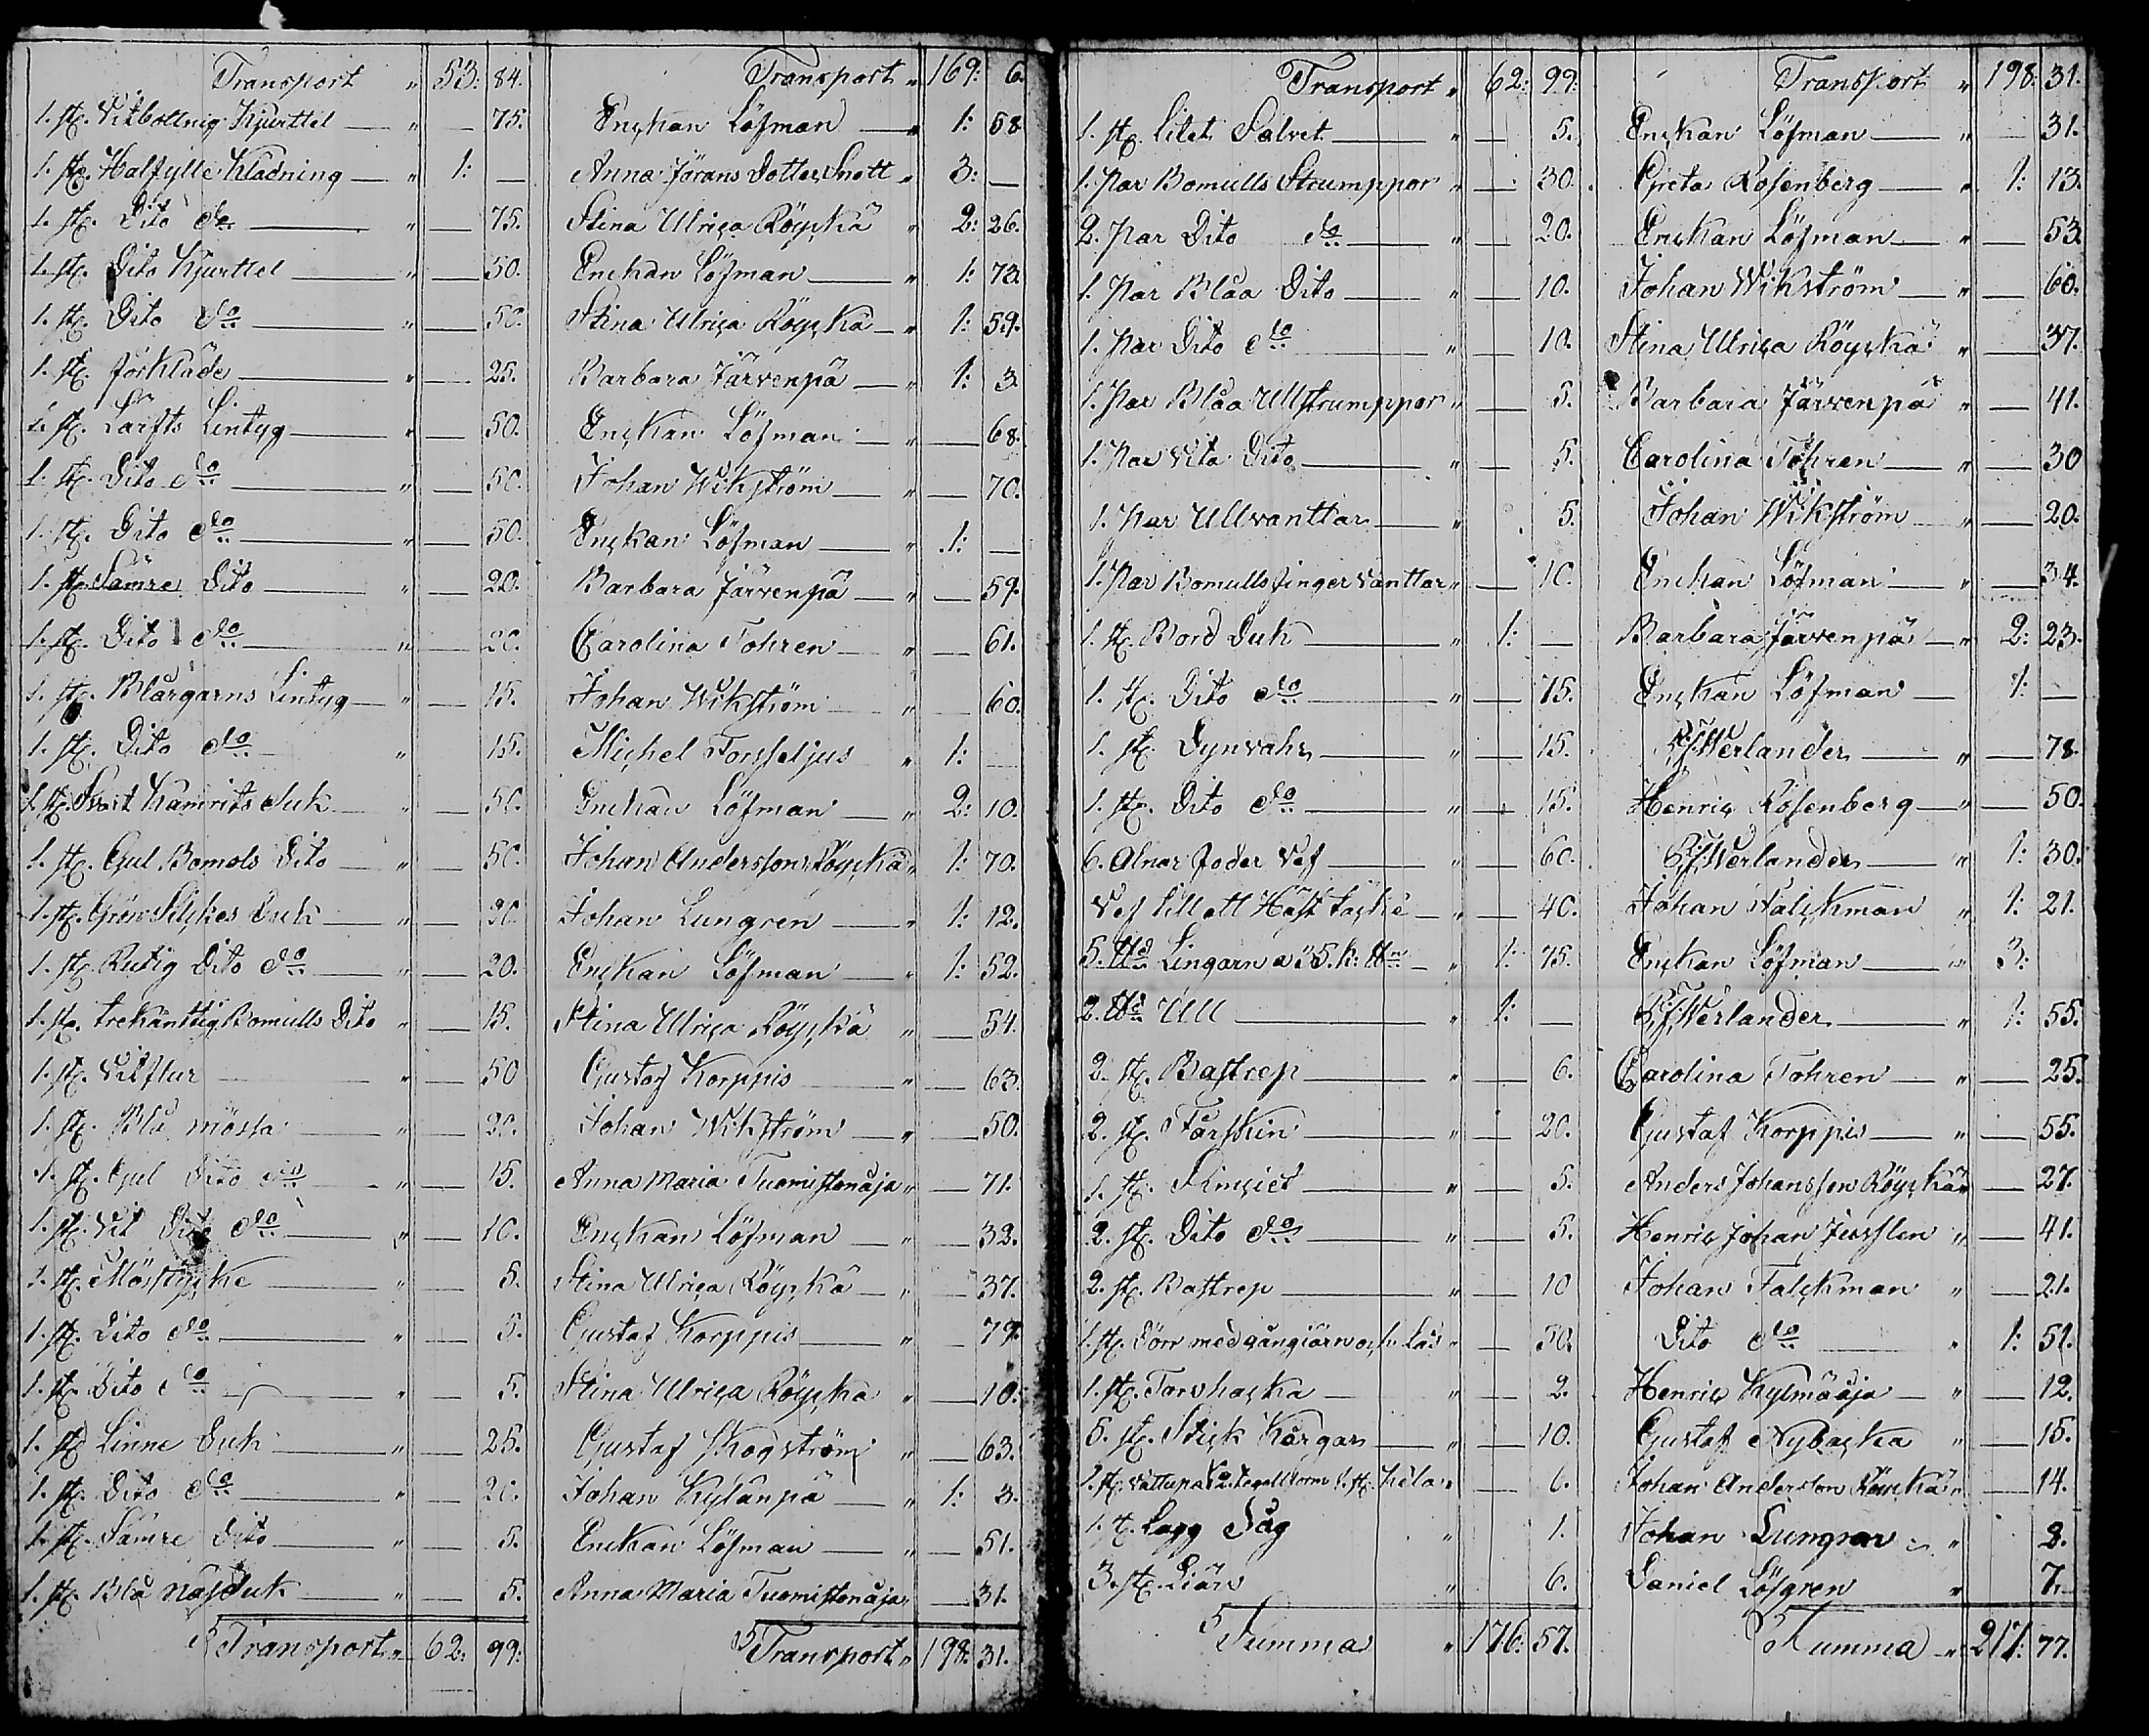 Transport „ 53: 84. Transport „ 169: 6.
1. st. Vitbottnig Kjurttel „ — 75. Enckan Löfman „ 1: 58
1. st. Halfylle Klädning „ 1: — Anna Jörans Dotter Snått „ 3: —
1. st. Dito do „ — 75. Stina Ulrica Röyckä „ 2: 26.
1. st. Dito Kjurttel „ — 50. Enckan Löfman „ 1: 73.
1. st. Dito do „ — 50. Stina Ulrica Röyckä „ 1: 59.
1. st. förkläde „ — 25. Barbara Järvenpä „ 1: 3.
1. st. Lärfts Lintyg „ — 50. Enckan Löfman „ — 68.
1. st. Dito do „ — 50. Johan Wikström „ — 70.
1. st. Dito do „ — 50. Enckan Löfman „ 1: —
1. st. Sämre Dito „ — 20. Barbara Järvenpä „ — 59.
1. st. Dito do „ — 20. Carolina Tohren „ — 61.
1. st. Blårgarns Lintyg „ — 15. Johan Wikström „ — 60.
1. st. Dito do „ 15. Michel Forsseljus „ 1: —
1. st. Svart Kamrits duk „ 50. Enckan Löfman „ 2: 10.
1. st. Gul Bomols Dito „ — 50. Johan Andersson Röyckä „ 1: 70.
1. st. Grön Silckes Duk „ — 20. Johan Lungren „ 1: 12.
1. st. Rutig Dito do „ — 20. Enckan Löfman „ 1: 52.
1. st. trekänttig Bomulls Dito „ — 15. Stina Ulrica Röyckä „ — 54.
1. st. Vitflur „ — 50 Gustaf Korppis „ — 63.
1. st. Blå mössa „ — 20. Johan Wikström „ — 50.
1. st. Gul Dito do „ — 15. Anna Maria Tuomistonåja „ — 71.
1. st. Vit Dito do „ — 10. Enckan Löfman „ — 32.
1. st. Mösstycke „ 5. Stina Ulrica Röyckä „ — 37.
1. st. Dito do „ — 5. Gustaf Korppis „ — 79.
1. st. Dito do „ — 5. Stina Ulrica Röyckä „ — 10.
1. st. Linne Duk „ — 25. Gustaf Skogström „ — 63.
1. st. Dito do „ — 20. Johan Kylänpä „ 1: 3.
1. st. Sämre Dito „ — 5. Enckan Löfman „ — 51.
1. st. Blå Näsduk „ — 5. Anna Maria Tuomistonåja „ — 31.
Transport „ 62: 99: Transport „ 198: 31.
Transport „ 62: 99: Transport „ 198: 31.
1. st. litet Salvet „ — 5. Enckan Löfman „ 31.
1. Par Bomulls Strumppor „ — 30. Greta Rosenberg „ 1: 13.
2. Par Dito do „ — 20. Enckan Löfman „ — 53
1. Par Blåa Dito „ — 10. Johan Wikström „ — 60.
1. Par Dito do „ — 10. Stina Ulrica Röyckä „ — 37.
1. Par Blåa Ullstrumppor „ — 5. Barbara Järvenpä „ — 41.
1. Par Vita Dito „ — 5. Carolina Tohren „ — 30
1. Par Ullvanttar „ 5. Johan Wikström „ — 20.
1. Par Bomulls finger vanttar „ — 10. Enckan Löfman „ — 34.
1. st. Bord Duk „ 1: — Barbara Järvenpä „ 2: 23.
1. st. Dito do „ — 75. Enckan Löfman 1: —
1. st. Dynvahr „ — 15. Werlander „ — 78.
1. st. Dito do „ — 15. Henric Rosenberg „ — 50.
6. Alnar foder Vef „ — 60. Werlander „ 1: 30.
Vef till ett Häst täcke „ — 40. Johan Falckman „ 1: 21.
5. ℔d Lingarn a 35. k: ℔n „ 1: 75. Enckan Löfman „ 3:
2. ℔d Ull „ 1: — Werlander „ 1: 55.
2. st. Bastrep „ — 6. Carolina Tohren „ — 25.
2. st. Fårskin „ — 20. Gustaf Korppis „ — 55.
1. st. „ — 5. Anders Johansson Röyckä „ — 27.
2. st. Dito do „ — 5. Henric Johan „ — 41.
2. st. Bastrep „ — 10 Johan Falckman „ — 21.
1. st. Dörr med gångjärn och Lås „ — 50. Dito do „ 1: 51.
1. st. Torvhacka „ — 2. Henric Kylmäåja „ — 12.
5. st. Stick Kårgar „ — 10. Gustaf Nybacka „ — 15.
1. st. 1. st. „ — 6. Johan Andersson Röyckä „ — 14.
1. st. Lagg Såg „ 1. Johan Lungren „ 2.
3. st. Liär „ 6. Daniel Löfgren „ 7.
Summa „ 176: 57. Summa „ 217: 77.